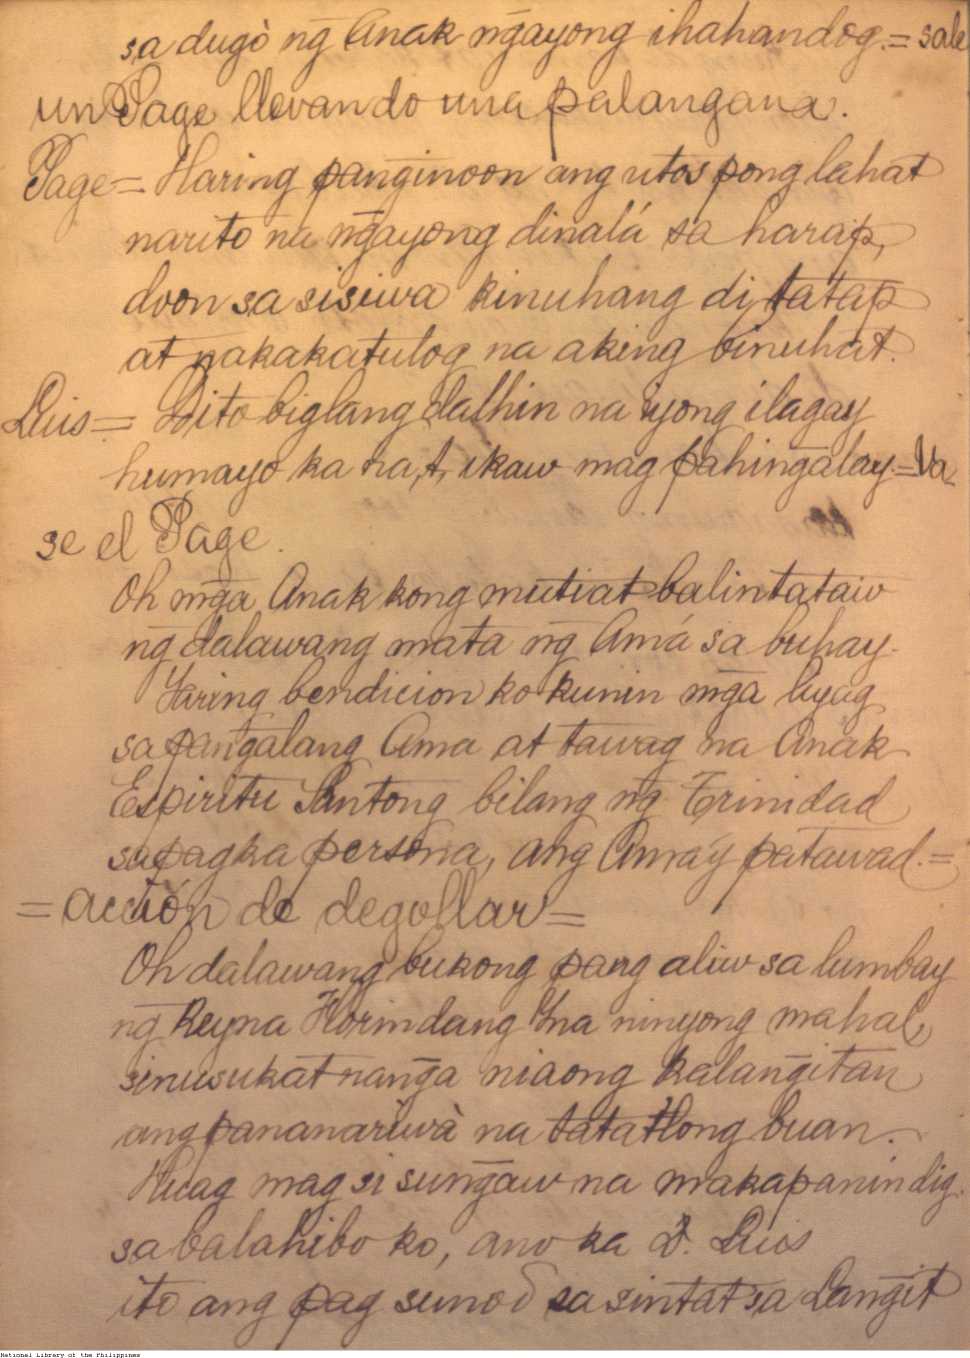 sa dugò ng̃ Anak ng̃ayong ihahandog.= sale
un Page llevando una palangana.
Page= Haring pang̃inoon ang utos pong lahat
narito na ng̃ayong dinalá sa harap,
doon sa sisiwa kinuhang di tatap
at nakakatulog na aking binuhat.
Luis= Dito biglang dalhin na iyong ilagay
humayo ka na,t, ikaw mag pahing̃alay.= Va-
se el Page.
Oh mg̃a Anak kong mutiat balintataw
ng̃ dalawang mata ng̃ Amá sa buhay.
Yaring bendicion ko kunin mg̃a liyag
sa pang̃alang Ama at tawag na Anak
Espiritu Santong bilang ng̃ Trinidad
sa pagka persona, ang Amáy patawad.=
= acción de degollar =
Oh dalawang bukong pang aliw sa lumbay
ng̃ Reyna Florindang Yna ninyong mahal,
sinusukat nang̃a niaong kalang̃itan
ang pananariwà na tatatlong buan.
Huag mag si sung̃aw na makapanindig
sa balahibo ko, ano ka D. Luis
ito ang pag sunod sa sintat sa Lang̃it
National Library of the Philippines